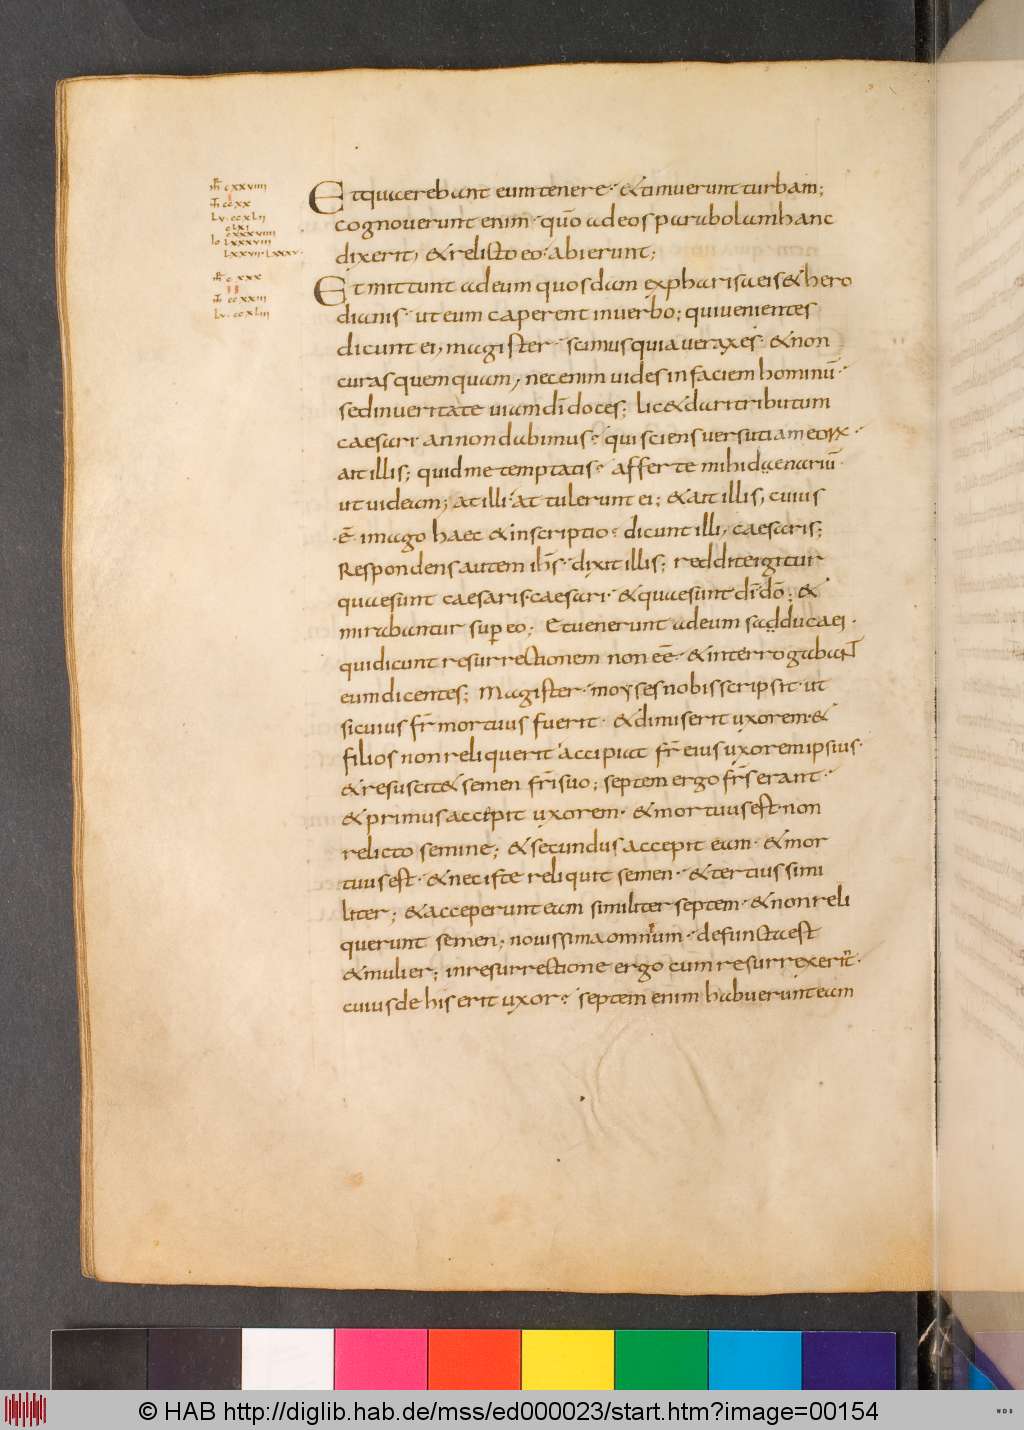 mr cxxviiii
mt ccxx
Lu ccxlii
clxi
cxxxviiii
Io lxxxviii
lxxvii lxxxv
mr cxxx
ii
mt ccxxiii
Lu ccxliii
Et quaerebant eum tenere · & timuerunt turbam;
cognouerunt enim · quō ad eos parabolam hanc
dixerit, & relicto eo · abierunt;
Et mittunt ad eum quosdam ex pharisaeis & hero
dianis · ut eum caperent in uerbo; qui uenientes
dicunt ei, magister · scimus quia uerax es · & non
curas quemquam, nec enim uides in faciem hominū ·
sed in ueritate uiam dī doces; lic& dari tributum
caesari an non dabimus · qui sciens uersutiam eorꝝ ·
ait illis; quid me temptatis · afferte mihi daenariū ·
ut uideam; at illi attulerunt ei; & ait illis, cuius
· ē · imago haec & inscriptio · dicunt illi, caesaris;
Respondens autem ihs · dixit illis; reddite igitur
quae sunt caesaris · caesari · & quae sunt dī dō; &
mirabantur suꝑ eo; Et uenerunt ad eum sadducaei ·
qui dicunt resurrectionem non eē · & interrogabant
eum dicentes; Magister · moyses nobis scripsit · ut
si cuius fr̄ mortuus fuerit · & dimiserit uxorem · &
filios non reliquerit accipiat fr̄ eius uxorem ipsius ·
& resuscit& semen fr̄i suo; septem ergo fr̄s erant ·
& primus accepit uxorem · & mortuus est · non
relicto semine; & secundus accepit eam · & mor
tuus est · & nec iste reliquit semen · & tertius simi
liter; & acceperunt eam similiter septem · & non reli
querunt semen; nouissima omnium · defuncta est
& mulier; in resurrectione ergo cum resurrexerit ·
cuius de his erit uxor · septem enim habuerunt eam
© HAB http://diglib.hab.de/mss/ed000023/start.htm?image=00154